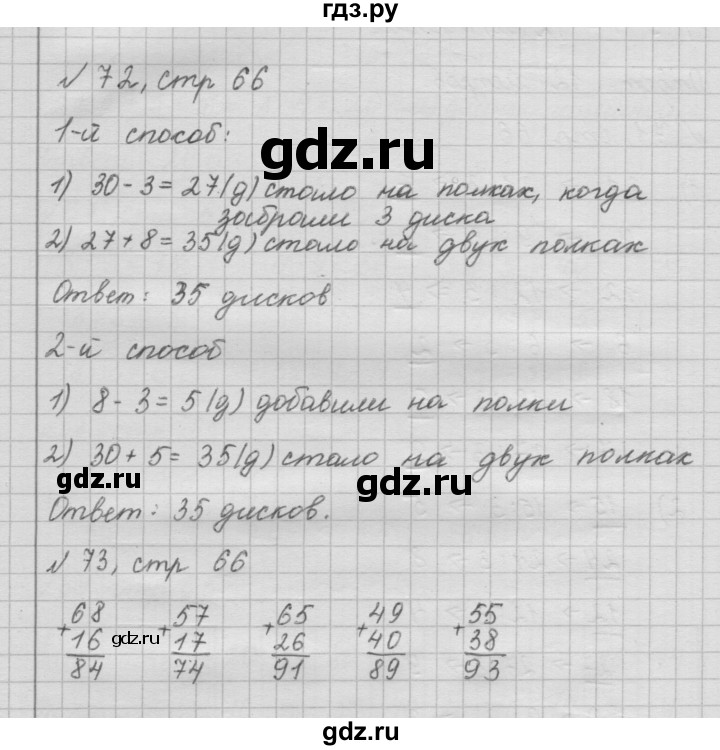 гдз.ру
№ 72, стр 66
1-й способ:
gdz.ru
1) 30 - 3 = 27 (д) стало на полках, когда
забрали 3 диска
2) 27 + 8 = 35 (д) стало на двух полках
Ответ: 35 дисков
2-й способ
1) 8 - 3 = 5 (д) добавили на полки
2) 30 + 5 = 35 (д) стало на двух полках
gdz.ru gdz.ru
Ответ: 35 дисков.
№ 73, стр 66
+68 +57 +65 +49 +55
16 gdz.ru 17 26 40 38
84 74 91 89 93
gdz.ru